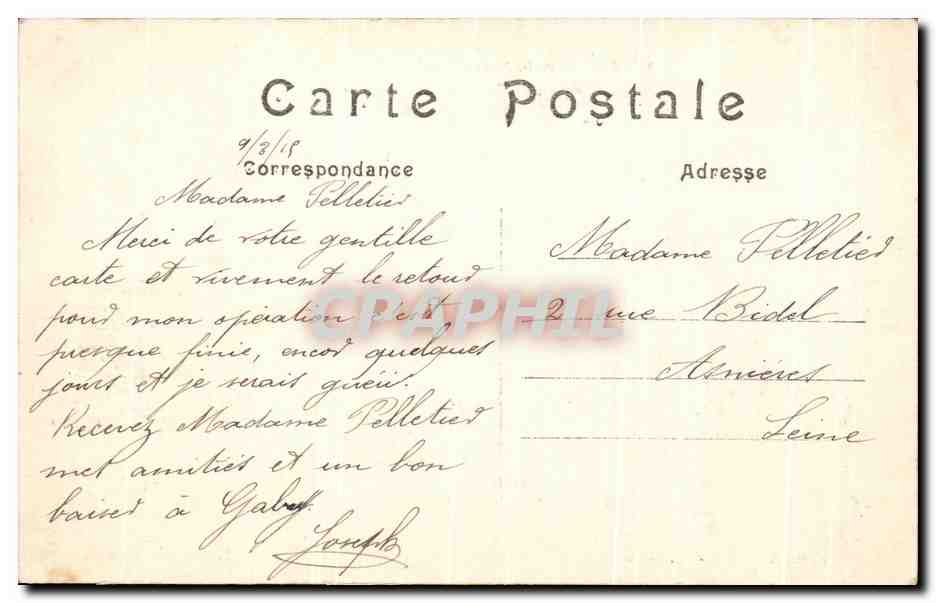 Carte Postale
9/8/15
Correspondance
Madame Pelletier
Merci de votre gentille
carte et vivement le retour
pour mon opération c'est
presque finie, encor quelques
jours et je serais guéri.
Recevez Madame Pelletier
mes amitiés et un bon
baiser à Gaby.
Joseph
Adresse
Madame Pelletier
2 rue Bidel
Asnières
Seine
CPAPHIL